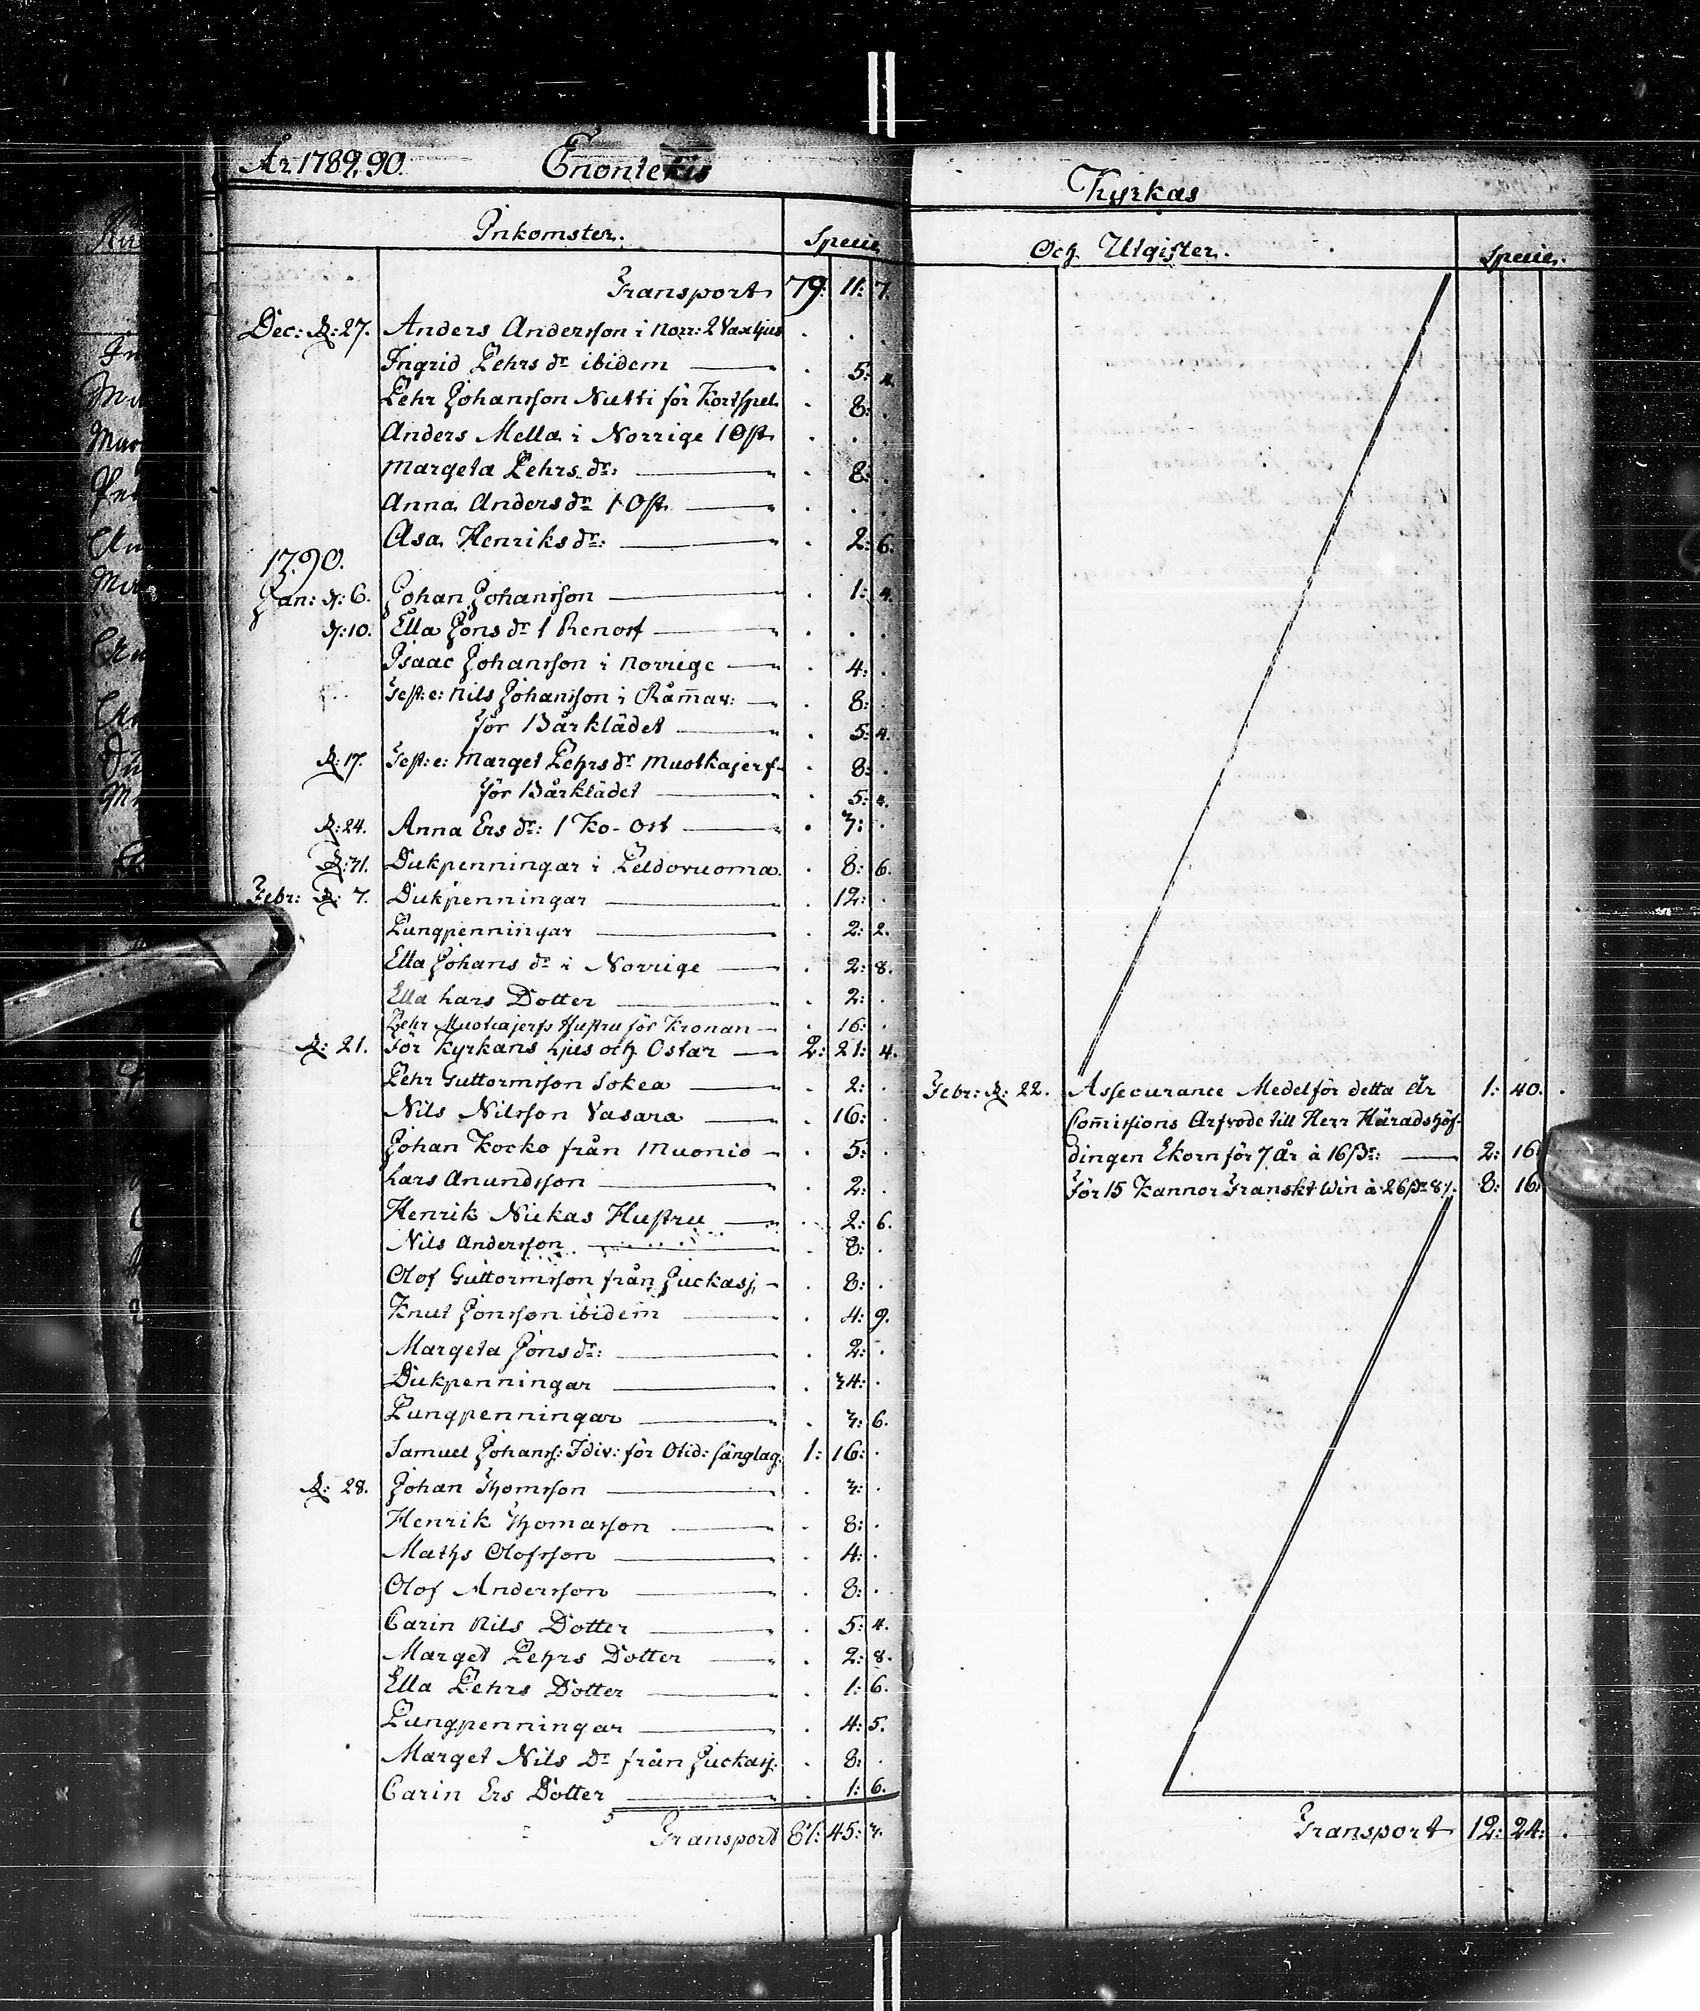 År 1789, 90. Enontekis
Inkomster. Specie
Transport 79: 11: 7.
Dec: d: 27. Anders Andersson i Norr: 2 Vaxljus . . .
Ingrid Pehrs dr ibidem . 5: 4.
Pehr Johansson Nutti för Kortspel . 8: .
Anders Mella i Norrige 1 Ost . . .
Margeta Pehrs dr: . 8: .
Anna Anders dr 1 Ost . . .
Asa Henriks dr: . 2: 6.
1790.
Jan: d: 6. Johan Johansson . 1: 4.
d: 10. Ella Jons dr 1 Renost . . .
Isaac Johansson i Norrige . 4: .
Test: e: Nils Johansson i Råm̄ar: . 8: .
för Bårklädet . 5: 4.
d: 17. Test: e: Marget Pehrs dr Muotkajerf . 8: .
för Bårklädet . 5: 4.
d: 24. Anna Ers dr: 1 Ko-Ost . 3: .
d: 31. Dukpenningar i Peldovuoma . 8: 6.
Febr: d: 7. Dukpenningar . 12: .
Pungpenningar . 2: 2.
Ella Johans dr i Norrige . 2: 8.
Ella Lars Dotter . 2: .
Pehr Muotkajerfs Hustru för Kronan . 16: .
d: 21. För Kyrkans Ljus och Ostar 2: 21: 4.
Pehr Guttormsson Sokea . 2: .
Nils Nilsson Vasara . 16: .
Johan Kocko från Muonio . 5: .
Lars Anundsson . 2: .
Henrik Nickas Hustru . 2: 6.
Nils Andersson . 8: .
Olof Guttormsson från Juckasj. . 8: .
Knut Jonsson ibidem . 4: 9.
Margeta Jons dr: . 2: .
Dukpenningar . 34: .
Pungpenningar . 3: 6.
Samuel Johans: för Otid: sänglag. 1: 16: .
d: 28. Johan Thomsson . 3: .
Henrik Thomasson . 8: .
Maths Olofsson . 4: .
Olof Andersson . 8: .
Carin Nils Dotter . 5: 4.
Marget Pehrs Dotter . 2: 8.
Ella Pehrs Dotter . 1: 6.
Pungpenningar . 4: 5.
Marget Nils Dr från Juckasj. . 8: .
Carin Ers Dotter . 1: 6.
Transport 87: 45: 3.
Kyrkas
Och Utgifter. Specie.
Febr: d: 22. Assecurance Medel för detta år 1: 40. .
Com̄issions Arfvode till Herr Häradshöf-
dingen Ekorn för 7 år à 16 ßr: 2: 16
För 15 Kannor Franskt Win à 26 ßr 8 8: 16.
Transport 12: 24: .